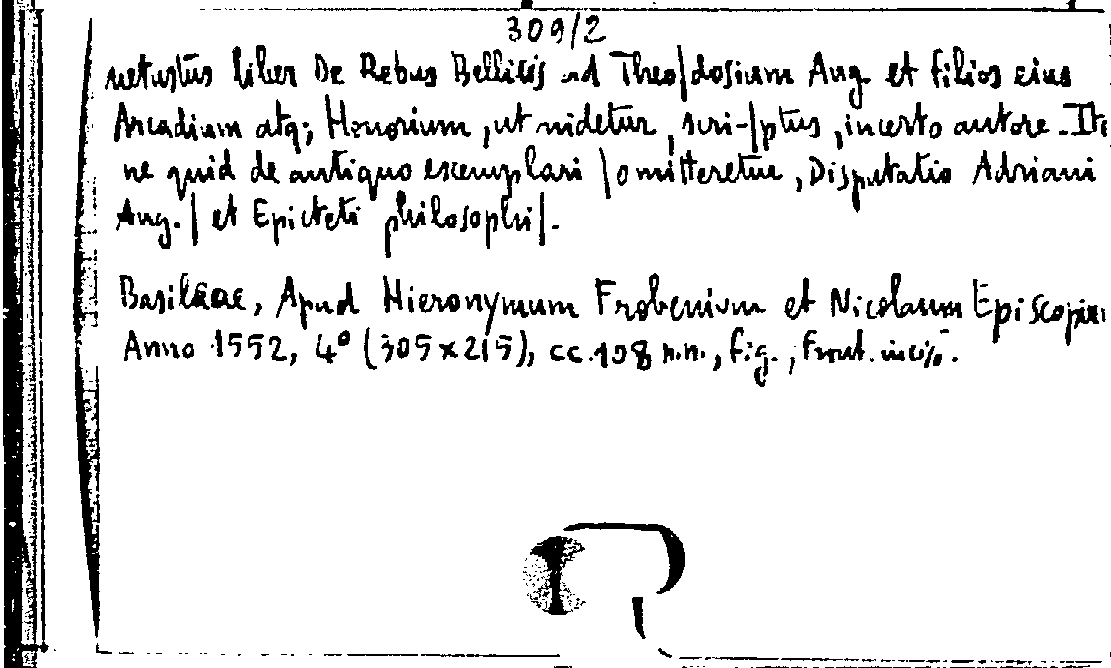 309/2
uetustus liber De Rebus Bellicis ad Theo|dosium Aug. et filios eius
Arcadium atq; Honorium, ut uidetur, scri-|ptus, incerto autore. Ite
ne quid de antiquo exemplari |omitteretur, Disputatio Adriani
Aug.| et Epicteti philosophi|.
Basileae, Apud Hieronymum Frobenium et Nicolaum Episcopium
Anno 1552, 4° (305x215), cc.108 n.n., fig., front. inciso.